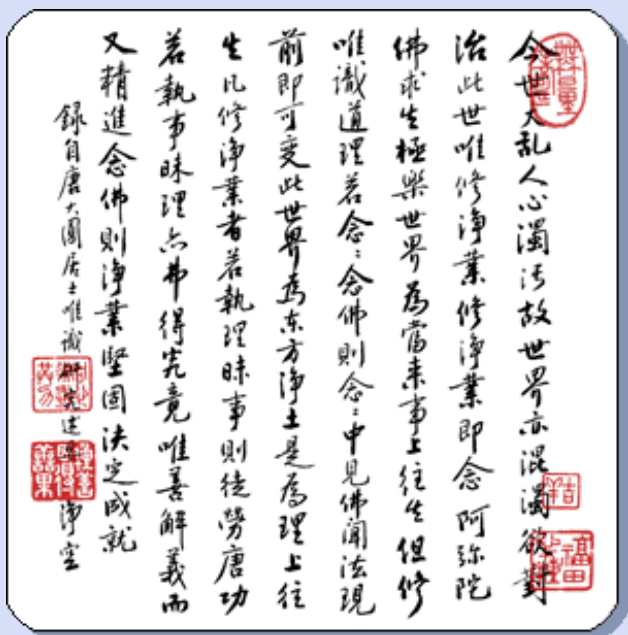 今世大乱人心濁污故世界亦混濁欲對
治此世唯修淨業修淨業即念阿弥陀
佛求生極樂世界為當来事上往生但修
唯識道理若念〻念佛則念〻中見佛聞法現
前即可变此世界為东方淨土是為理上往
生凡修淨業者若執理昧事則徒勞唐功
若執事昧理亦弗得究竟唯善解義而
又精進念佛則淨業堅固決定成就
録自唐大圓居士唯識研究述 淨空